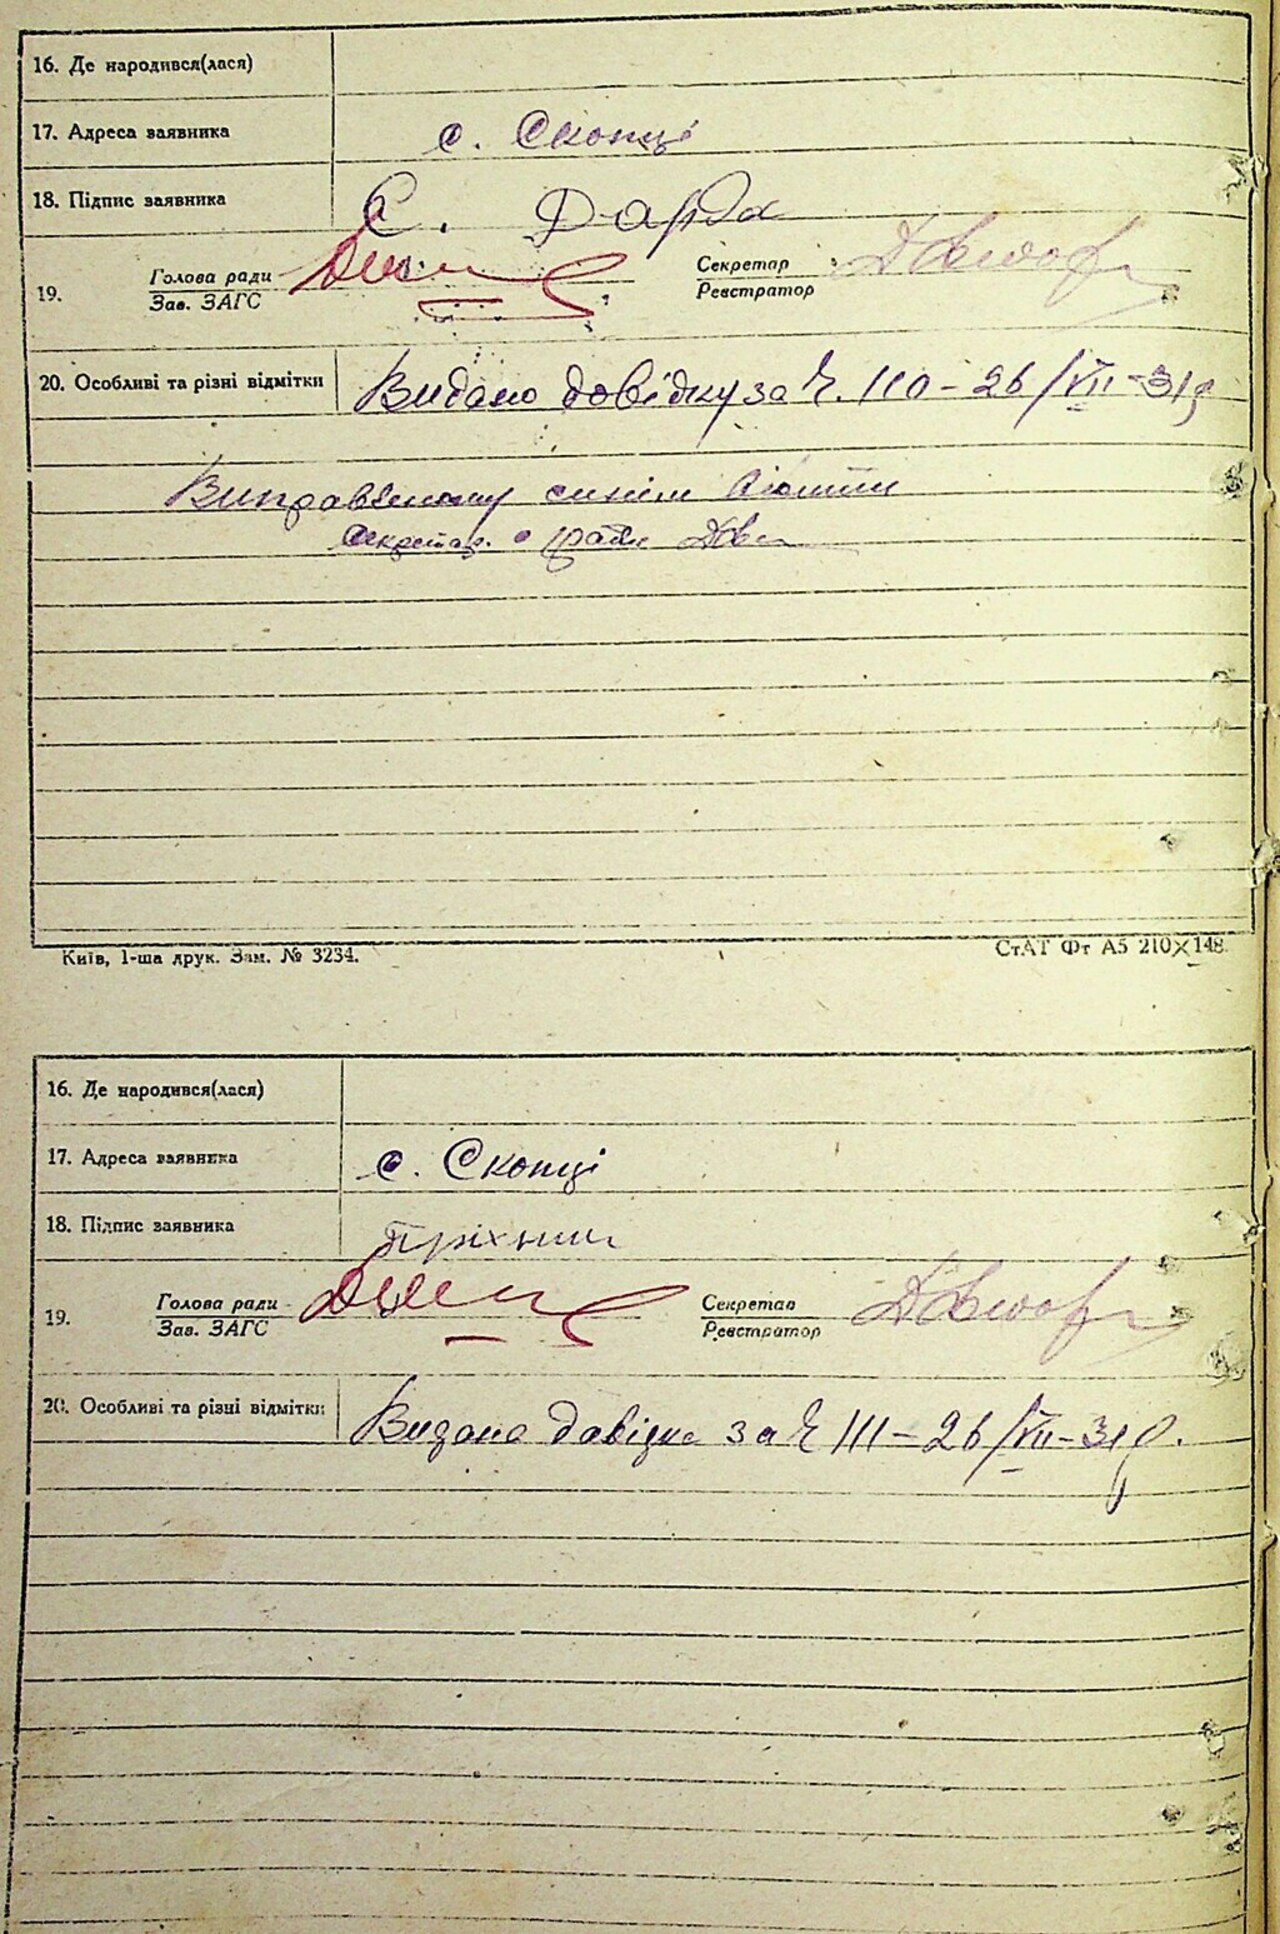 16. Де народився(лася)
17. Адреса заявника с. Скопці
18. Підпис заявника С. Дарда
19. Голова ради
Зав. ЗАГС
Секретар
Реєстратор
20. Особливі та різні відмітки Видано довідку за Ч. 110 – 26/VII – 31р
Виправленому вірити
Секретар с ради
Київ, 1-ша друк. Зам. № 3234.
СтАТ Фт А5 210×148.
16. Де народився(лася)
17. Адреса заявника с. Скопці
18. Підпис заявника
19. Голова ради
Зав. ЗАГС
Секретар
Реєстратор
20. Особливі та різні відмітки Видано довідку за Ч 111 – 26/VII – 31р.